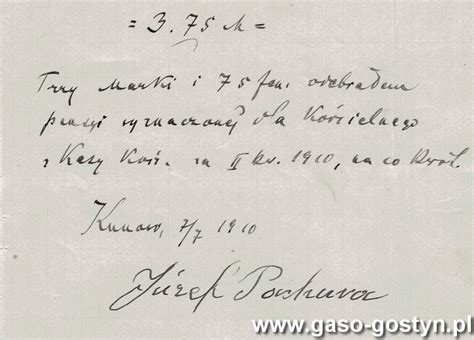 = 3.75 M =
Trzy Marki i 75 fen. odebrałem
pensyi wyznaczonej dla Kościelnego
z Kasy Kośc. za II kw. 1910, na co kwit.
Kunowo, 7/7 1910
Józef
www.gaso-gostyn.pl